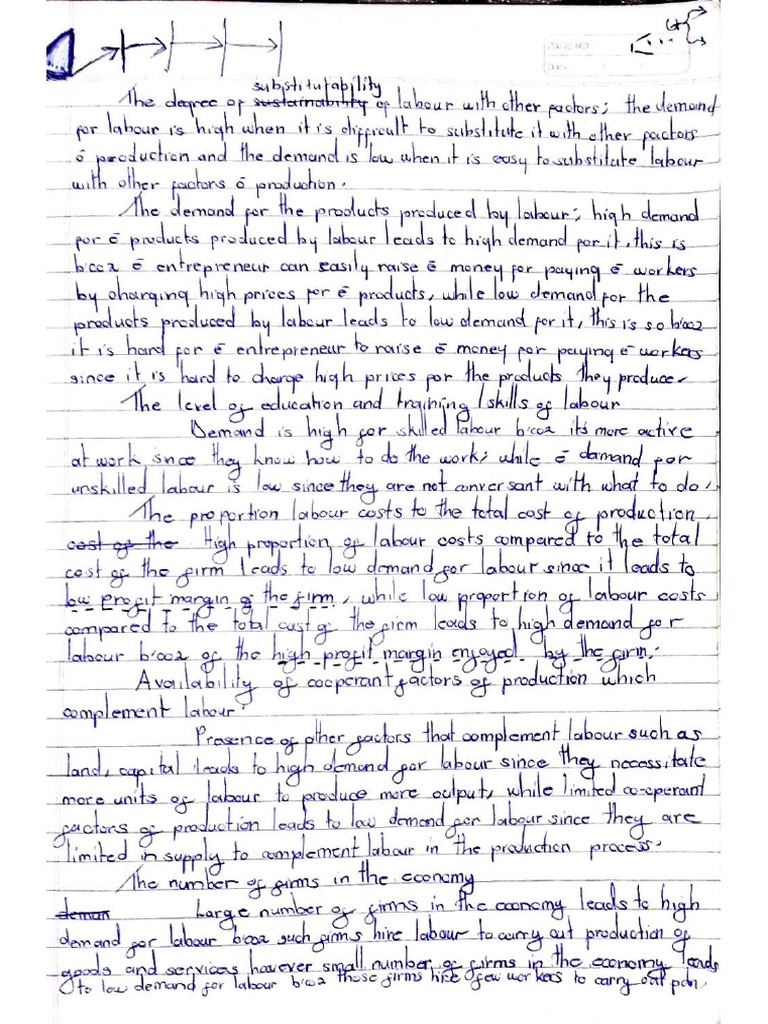 PAGE NO
substitutability
The degree of sustainability of labour with other factors; the demand
for labour is high when it is difficult to substitute it with other factors
ō production and the demand is low when it is easy to substitute labour
with other factors ō production.
The demand for the products produced by labour; high demand
for ē products produced by labour leads to high demand for it, this is
b'coz ē entrepreneur can easily raise ē money for paying ē workers
by charging high prices for ē products, while low demand for the
products produced by labour leads to low demand for it, this is so b'coz
it is hard for ē entrepreneur to raise ē money for paying ē workers
since it is hard to charge high prices for the products they produce.
The level of education and training / skills of labour
Demand is high for skilled labour b'coz its more active
at work since they know how to do the work; while ē demand for
unskilled labour is low since they are not conversant with what to do.
The proportion labour costs to the total cost of production.
cost of the High proportion of labour costs compared to the total
cost of the firm leads to low demand for labour since it leads to
low profit margin of the firm, while low proportion of labour costs
compared to the total cost of the firm leads to high demand for
labour b'coz of the high profit margin enjoyed by the firm.
Availability of cooperant factors of production which
complement labour:
Presence of other factors that complement labour such as
land, capital leads to high demand for labour since they necessitate
more units of labour to produce more output, while limited co-operant
factors of production leads to low demand for labour since they are
limited in supply to complement labour in the production process.
The number of firms in the economy
deman Large number of firms in the economy leads to high
demand for labour b'coz such firms hire labour to carry out production of
goods and services however small number of firms in the economy leads
to low demand for labour b'coz those firms hire few workers to carry out pdn.